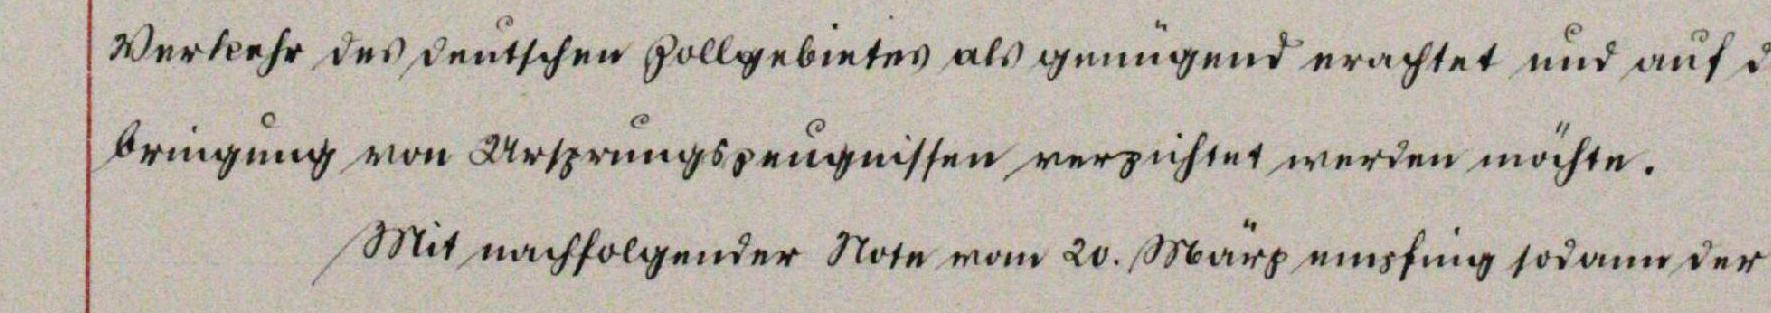 Verkehr des deutschen Zollgebietes als genügend erachtet und auf d
bringung von Ursprungszeugnissen verzichtet werden möchte.
Mit nachfolgender Note vom 20. März empfing sodann der